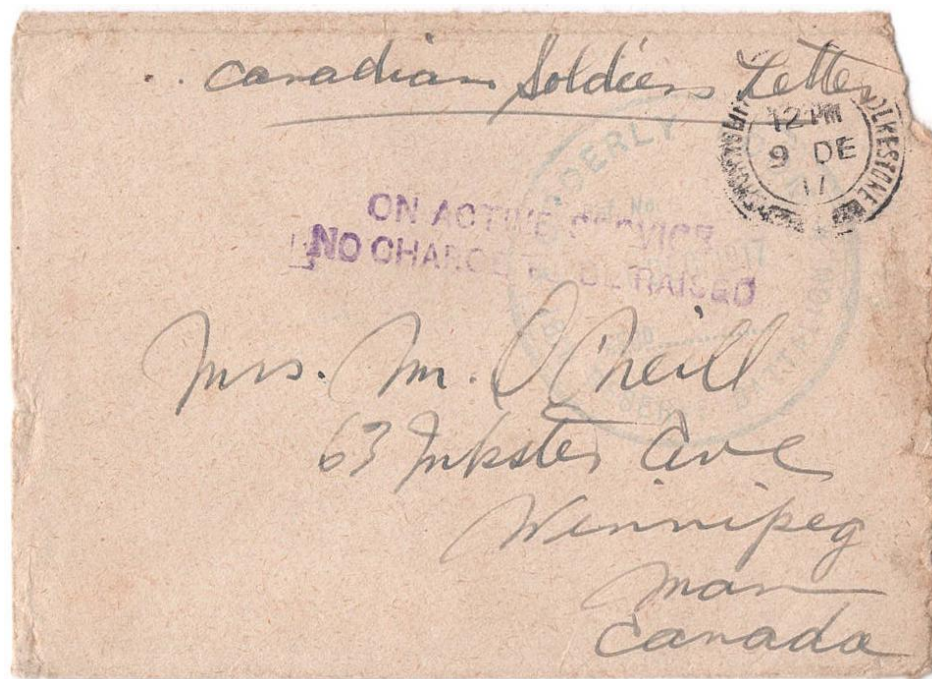 .. Canadian Soldiers Letter
FOLKESTONE
12 PM
9 DE
17
ON ACTIVE SERVICE
NO CHARGE TO BE RAISED
Mrs. M. O'Neill
63 Inkster Ave
Winnipeg
Man
Canada